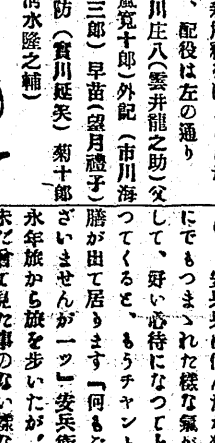 、配役は左の通り
川庄八(雲井龍之助)父
嵐寛十郎)外記(市川海
三郎)早苗(望月禮子)
防(實川延笑)菊十郎
清水隆之輔)
にでもつまゝれた樣な氣が
して、好い心待になつて上
つてくると、もうチヤント
膳が出て居ります「何もご
ざいませんが一ツ」安兵衛
永年旅から旅を歩いたが、
未だ曾て見た事のない樣な